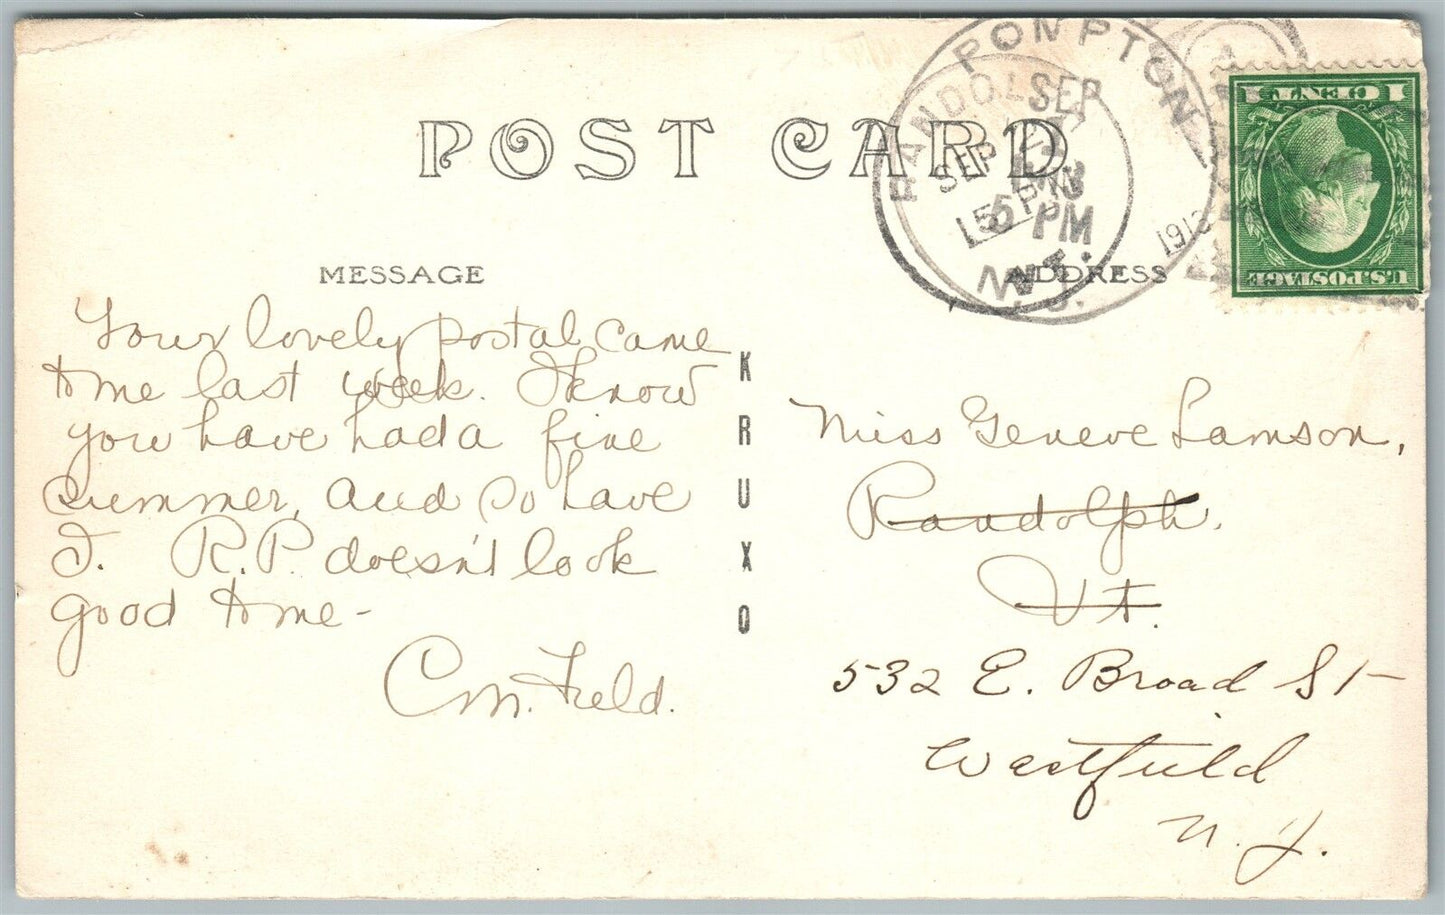 POST CARD
POMPTON
SEP
5 PM
N.J.
RANDOL
SEP
5 P
1913
1 CENT 1
U.S. POSTAGE
MESSAGE
Your lovely postal came
to me last week. I know
you have had a fine
summer, and so have
I. R.P. doesn't look
good to me -
C.M. Field.
KRUXO
ADDRESS
Miss Geneve Lamson,
Randolph.
Vt.
532 E. Broad St
Westfield
N.J.